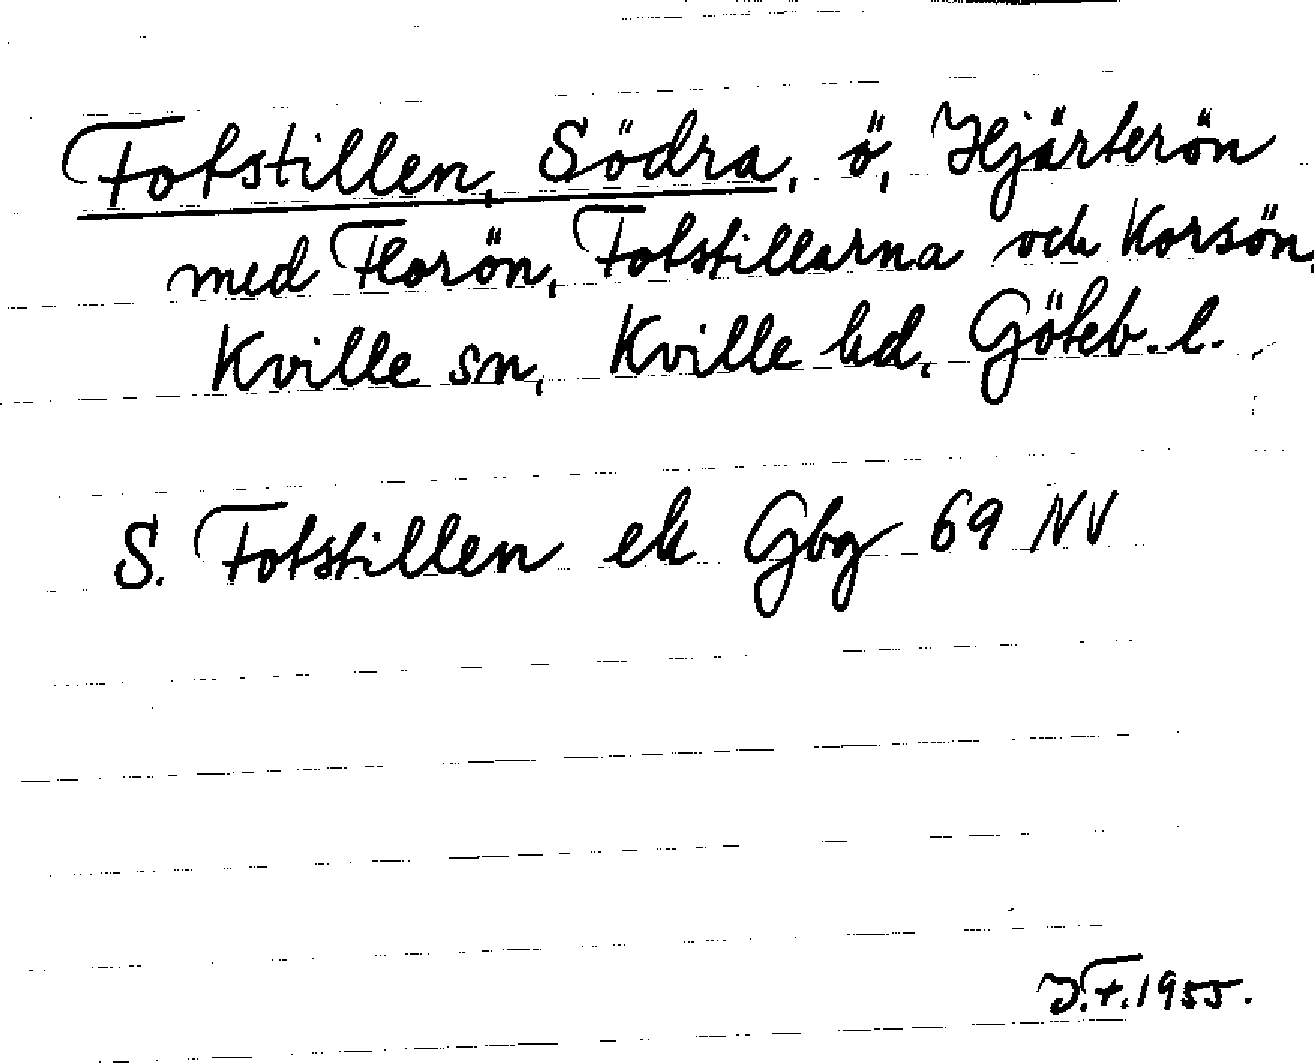 Fotstillen, Södra, ö, Hjärterön
med Florön, Fotstillarna och Korsön,
Kville sn, Kville hd, Göteb. l.
S. Fotstillen ek Gbg 69 NV
J.F. 1955.